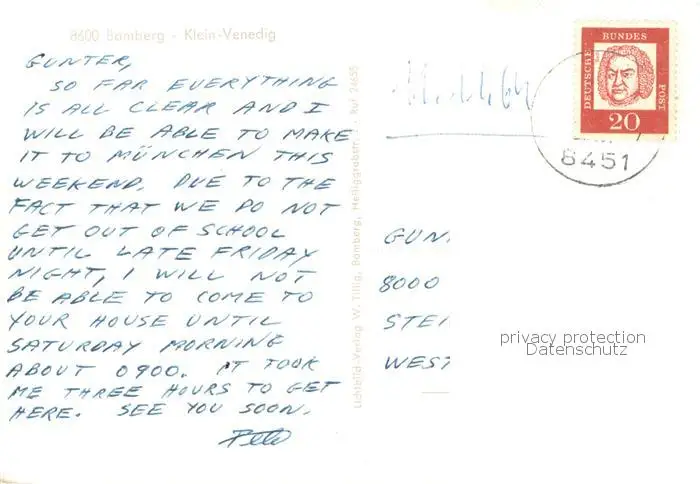 8600 Bamberg - Klein-Venedig
GUNTER,
SO FAR EVERYTHING
IS ALL CLEAR AND I
WILL BE ABLE TO MAKE
IT TO MÜNCHEN THIS
WEEKEND. DUE TO THE
FACT THAT WE DO NOT
GET OUT OF SCHOOL
UNTIL LATE FRIDAY
NIGHT, I WILL NOT
BE ABLE TO COME TO
YOUR HOUSE UNTIL
SATURDAY MORNING
ABOUT 0900. IT TOOK
ME THREE HOURS TO GET
HERE. SEE YOU SOON.
Pete
Lichtbild-Verlag W. Tillig, Bamberg, Heiliggrabstr. Ruf 24655
DEUTSCHE BUNDES POST
20
8451
GUN
8000
STEI
WEST
privacy protection
Datenschutz